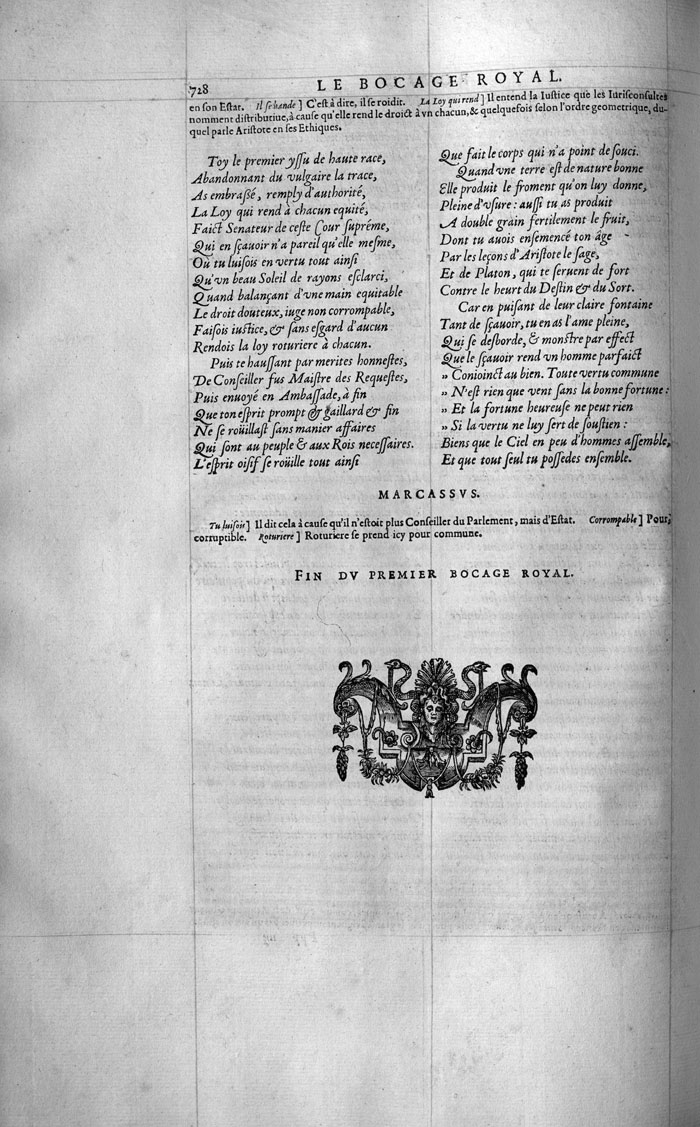 728 LE BOCAGE ROYAL.
en son Estat. Il se bande ] C'est à dire, il se roidit. La Loy qui rend ] Il entend la Iustice que les Iurisconsultes
nomment distributiue, à cause qu'elle rend le droict à vn chacun, & quelquefois selon l'ordre geometrique, du-
quel parle Aristote en ses Ethiques.
Toy le premier yssu de haute race,
Abandonnant du vulgaire la trace,
As embraßé, remply d'authorité,
La Loy qui rend à chacun equité,
Faict Senateur de ceste Cour supréme,
Qui en sçauoir n'a pareil qu'elle mesme,
Où tu luisois en vertu tout ainsi
Qu'vn beau Soleil de rayons esclarci,
Quand balançant d'vne main equitable
Le droit douteux, iuge non corrompable,
Faisois iustice, & sans esgard d'aucun
Rendois la loy roturiere à chacun.
Puis te haussant par merites honnestes,
De Conseiller fus Maistre des Requestes,
Puis enuoyé en Ambassade, à fin
Que ton esprit prompt & gaillard & fin
Ne se roüillast sans manier affaires
Qui sont au peuple & aux Rois necessaires.
L'esprit oisif se roüille tout ainsi
Que fait le corps qui n'a point de souci.
Quand vne terre est de nature bonne
Elle produit le froment qu'on luy donne,
Pleine d'vsure : aussi tu as produit
A double grain fertilement le fruit,
Dont tu auois ensemencé ton âge
Par les leçons d'Aristote le sage,
Et de Platon, qui te seruent de fort
Contre le heurt du Destin & du Sort.
Car en puisant de leur claire fontaine
Tant de sçauoir, tu en as l'ame pleine,
Qui se desborde, & monstre par effect
Que le sçauoir rend vn homme parfaict
» Conioinct au bien. Toute vertu commune
» N'est rien que vent sans la bonne fortune :
» Et la fortune heureuse ne peut rien
» Si la vertu ne luy sert de soustien :
Biens que le Ciel en peu d'hommes assemble,
Et que tout seul tu possedes ensemble.
MARCASSVS.
Tu luisois ] Il dit cela à cause qu'il n'estoit plus Conseiller du Parlement, mais d'Estat. Corrompable ] Pour,
corruptible. Roturiere ] Roturiere se prend icy pour commune.
FIN DV PREMIER BOCAGE ROYAL.